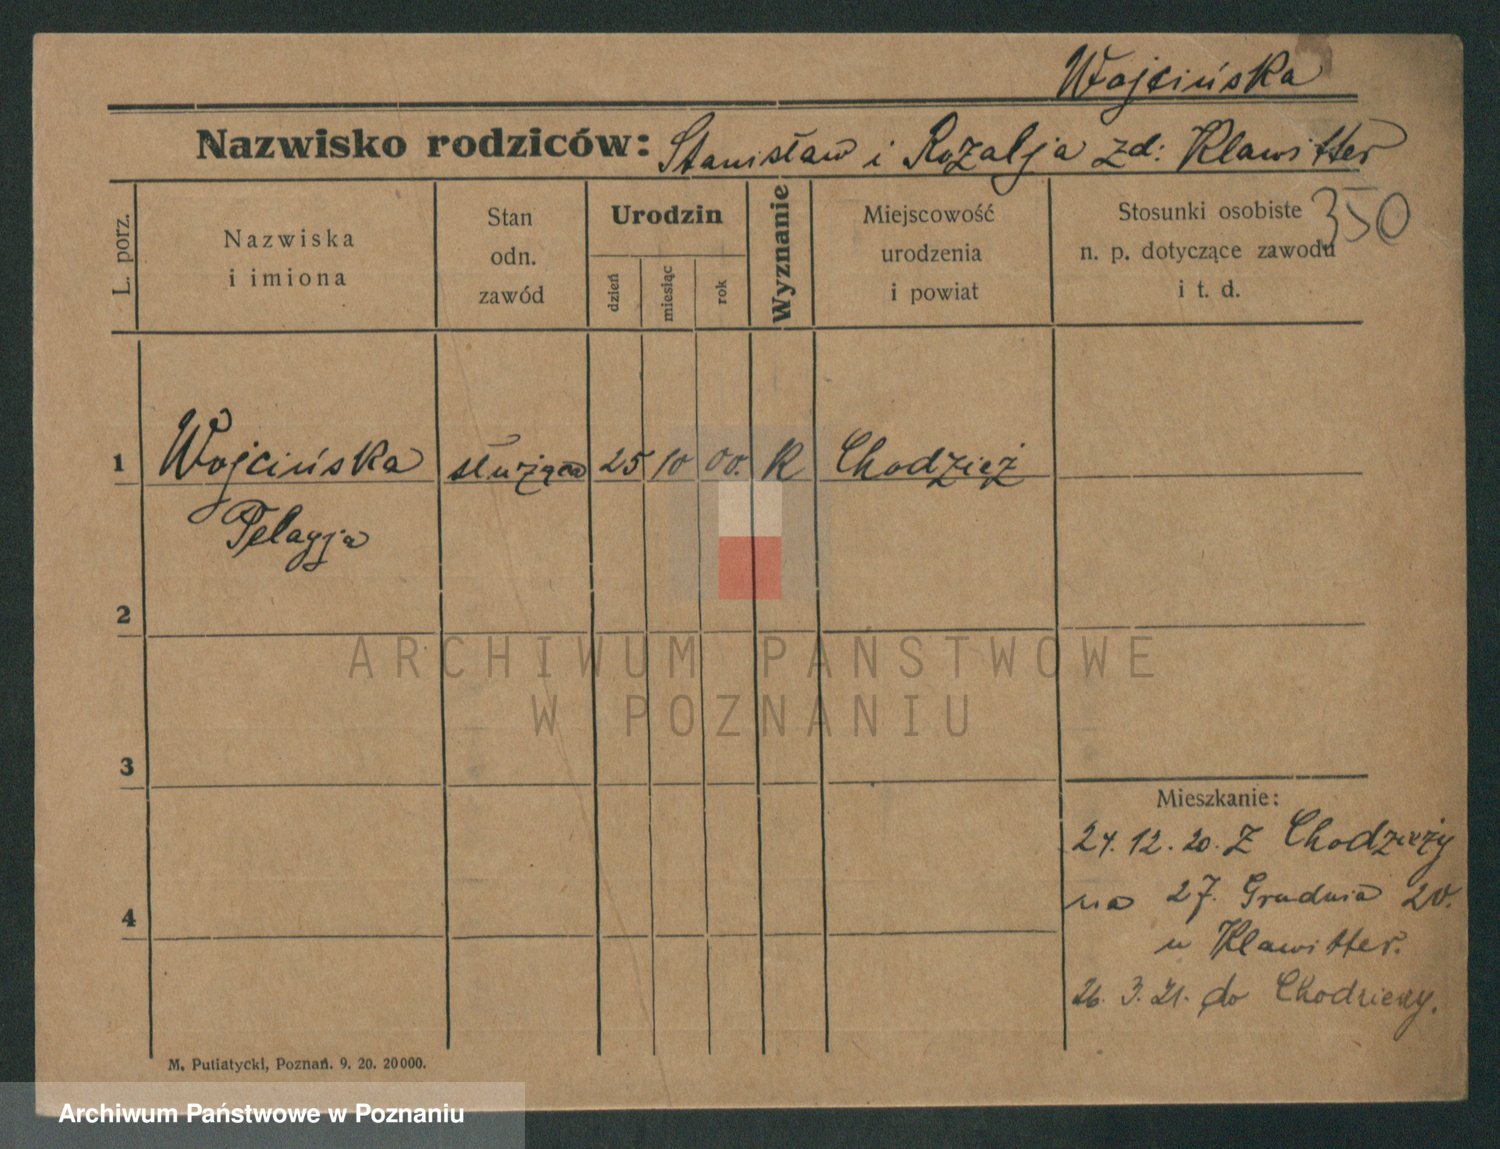 Wojcińska
Nazwisko rodziców: Stanisław i Rozalja zd: Klawitter
350
L. porz.
Nazwiska
i imiona
Stan
odn.
zawód
Urodzin
dzień
miesiąc
rok
Wyznanie
Miejscowość
urodzenia
i powiat
Stosunki osobiste
n. p. dotyczące zawodu
i t. d.
1 Wojcińska służąca 25 10 00. K Chodzież
Pelagja
2
ARCHIWUM PAŃSTWOWE
W POZNANIU
3
Mieszkanie:
24. 12. 20. Z Chodzieży
na 27. Grudnia 20.
u Klawitter.
4
26. 3. 21. do Chodzieży.
M. Putiatycki, Poznań. 9. 20. 20000.
Archiwum Państwowe w Poznaniu